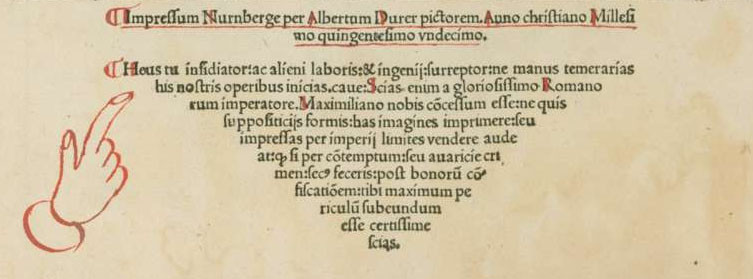 ¶Impressum Nurnberge per Albertum Durer pictorem. Anno christiano Millesi
mo quingentesimo vndecimo.
¶Heus tu insidiator: ac alieni laboris: & ingenij: surreptor: ne manus temerarias
his nostris operibus inicias. caue: Scias enim a gloriosissimo Romano
rum imperatore. Maximiliano nobis cōcessum esse: ne quis
suppositicijs formis: has imagines imprimere: seu
impressas per imperij limites vendere aude
at: qꝫ si per cōtemptum: seu auaricie cri
men: secꝰ feceris: post bonorū cō
fiscatiōem: tibi maximum pe
riculū subeundum
esse certissime
scias.